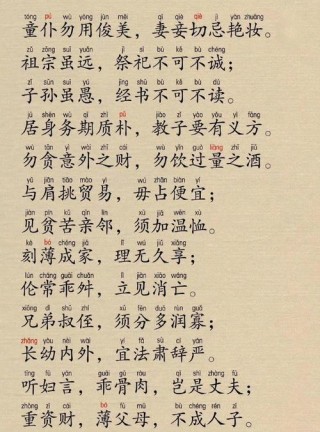 tóng pú wù yòng jùn měi qī qiè qiè jì yàn zhuāng
童仆勿用俊美，妻妾切忌艳妆。
zǔ zōng suī yuǎn jì sì bù kě bù chéng
祖宗虽远，祭祀不可不诚；
zǐ sūn suī yú jīng shū bù kě bù dú
子孙虽愚，经书不可不读。
jū shēn wù qī zhì pǔ jiào zǐ yào yǒu yì fāng
居身务期质朴，教子要有义方。
wù tān yì wài zhī cái wù yǐn guò liàng zhī jiǔ
勿贪意外之财，勿饮过量之酒。
yǔ jiān tiāo mào yì wú zhàn pián yi
与肩挑贸易，毋占便宜；
jiàn pín kǔ qīn lín xū jiā wēn xù
见贫苦亲邻，须加温恤。
kè bó chéng jiā lǐ wú jiǔ xiǎng
刻薄成家，理无久享；
lún cháng guāi chuǎn lì jiàn xiāo wáng
伦常乖舛，立见消亡。
xiōng dì shū zhí xū fēn duō rùn guǎ
兄弟叔侄，须分多润寡；
zhǎng yòu nèi wài yí fǎ sù cí yán
长幼内外，宜法肃辞严。
tīng fù yán guāi gǔ ròu qǐ shì zhàng fū
听妇言，乖骨肉，岂是丈夫；
zhòng zī cái bó fù mǔ bù chéng rén zǐ
重资财，薄父母，不成人子。